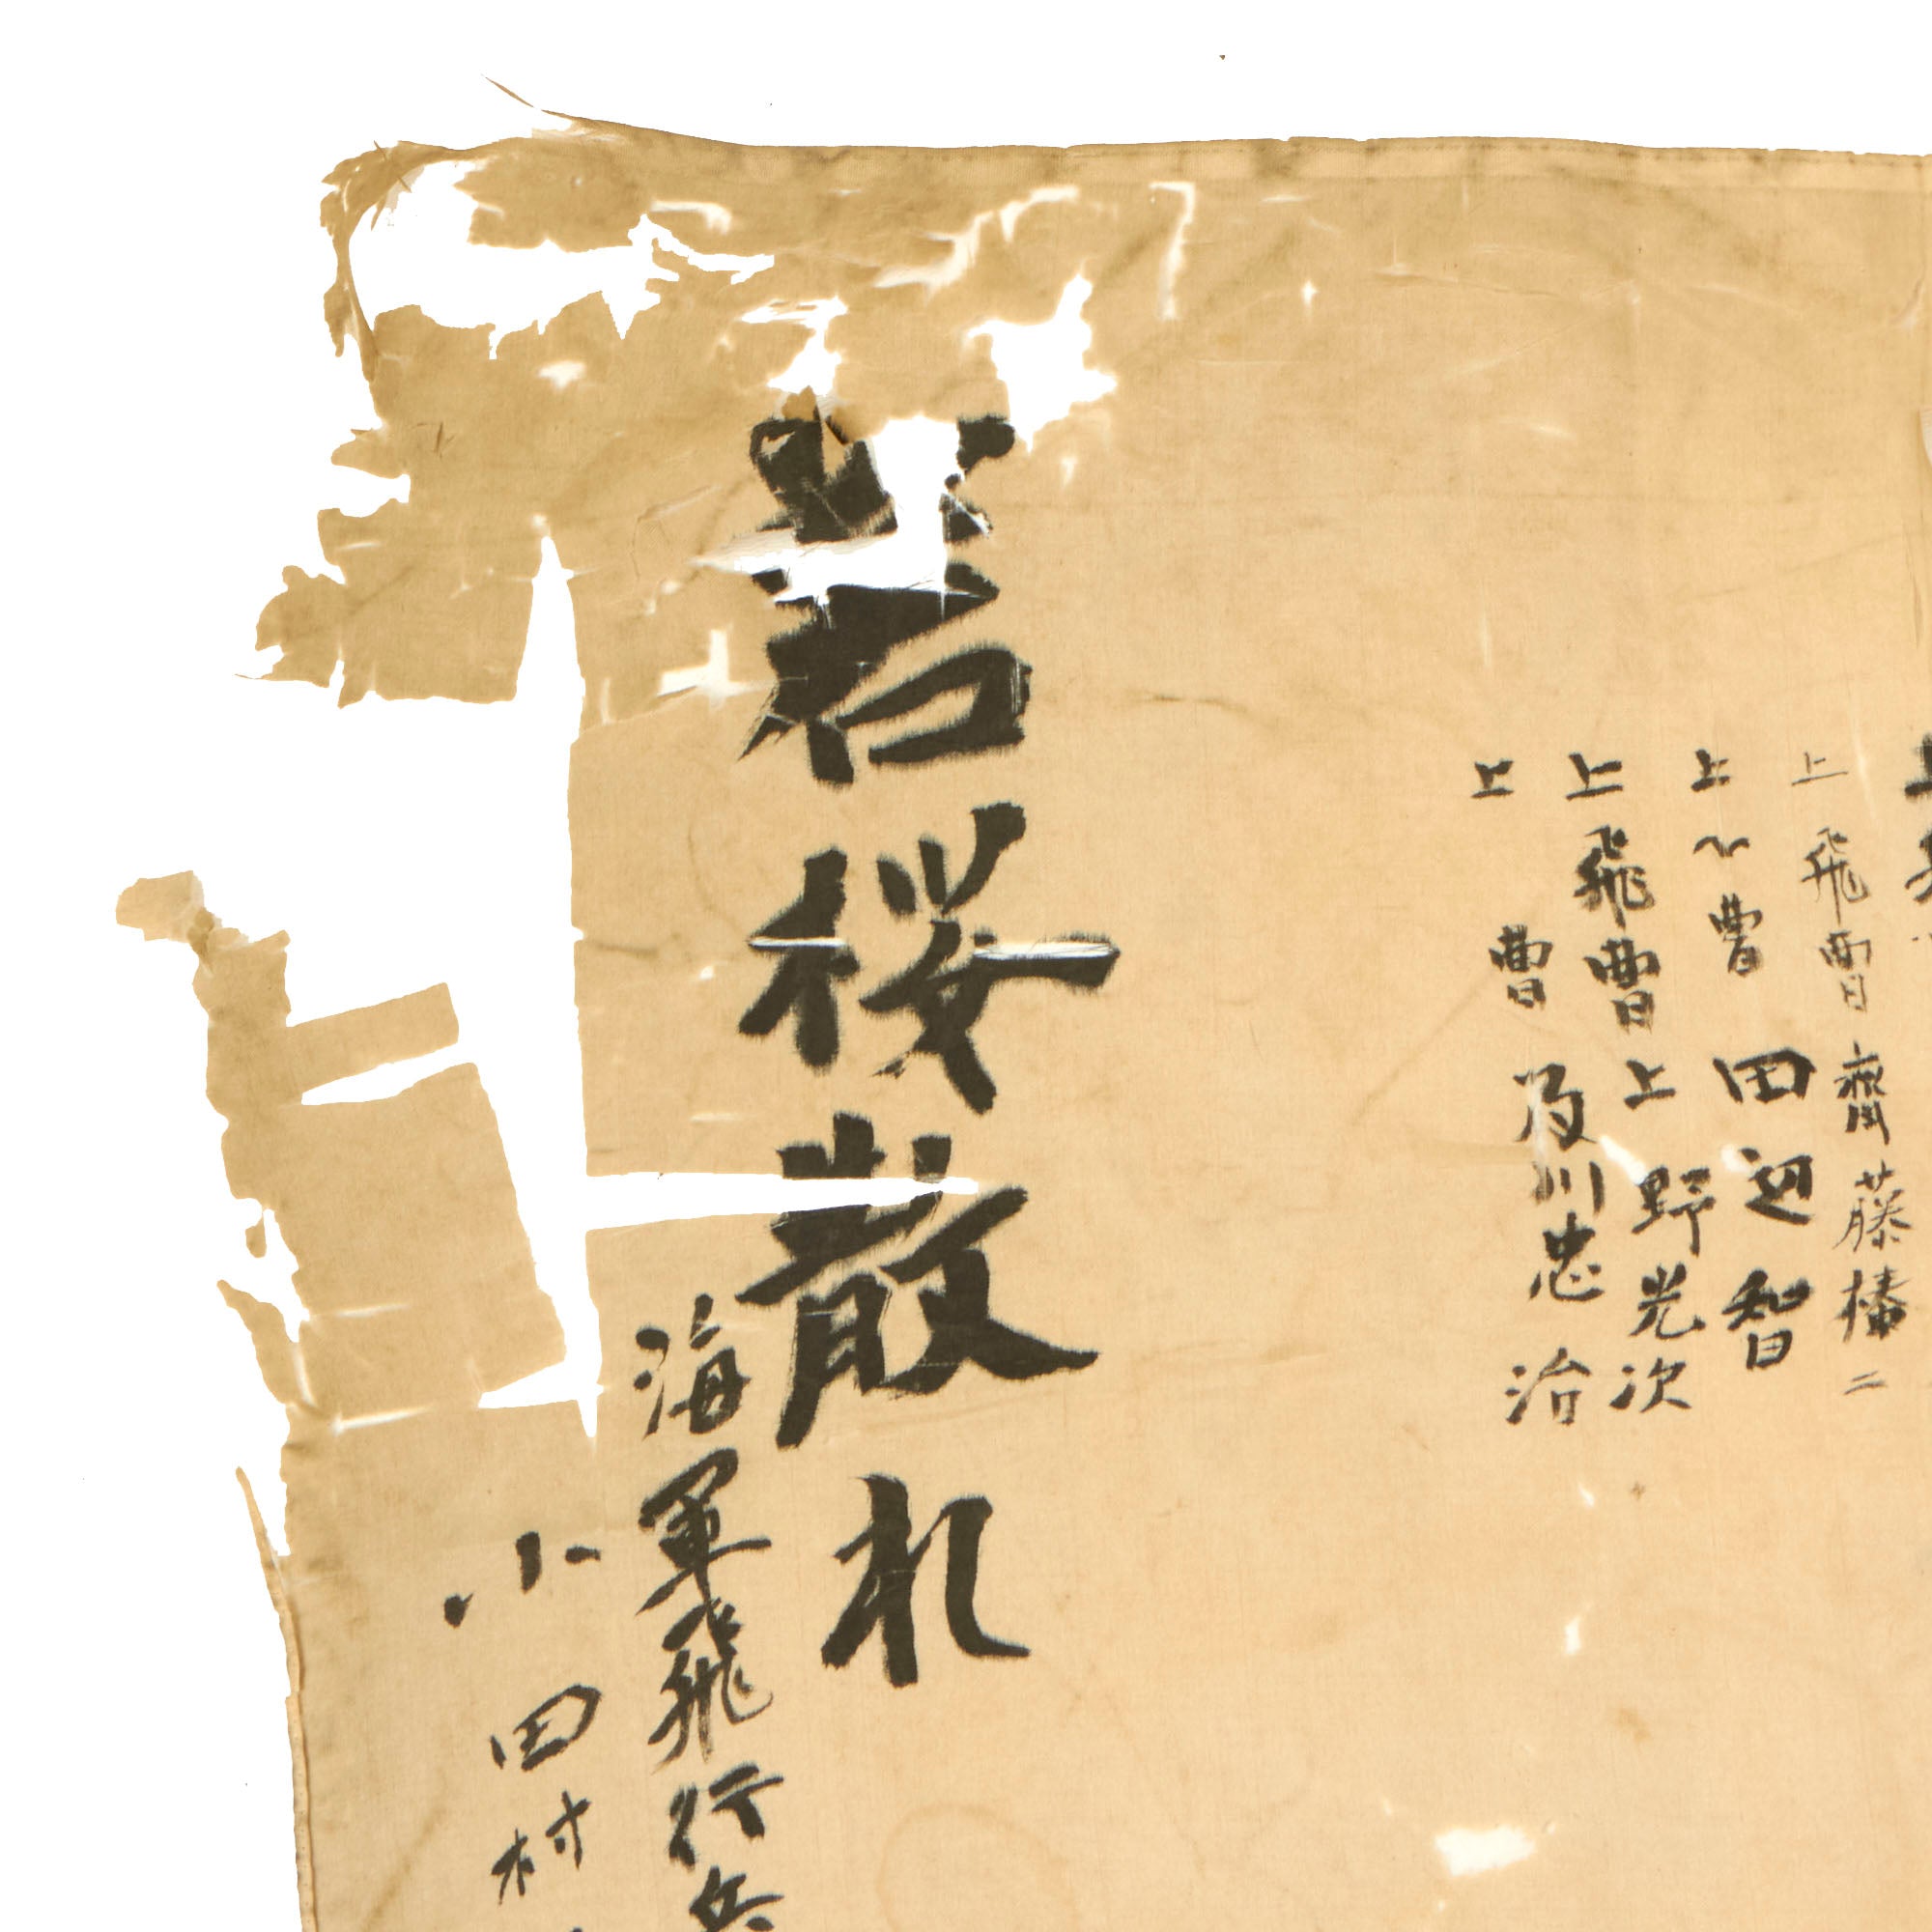 上飛曹 齋藤椿二
上〃曹 田辺智
上飛曹 上野光次
上 曹 及川忠治
若桜散れ
海軍飛行兵
小田村